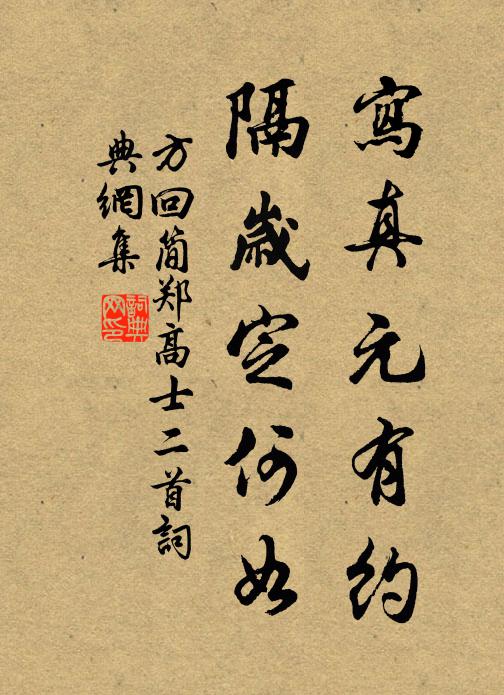 寫真元有約
隔歲定何如
方回简郑高士二首詞
典網集
詞典
网印